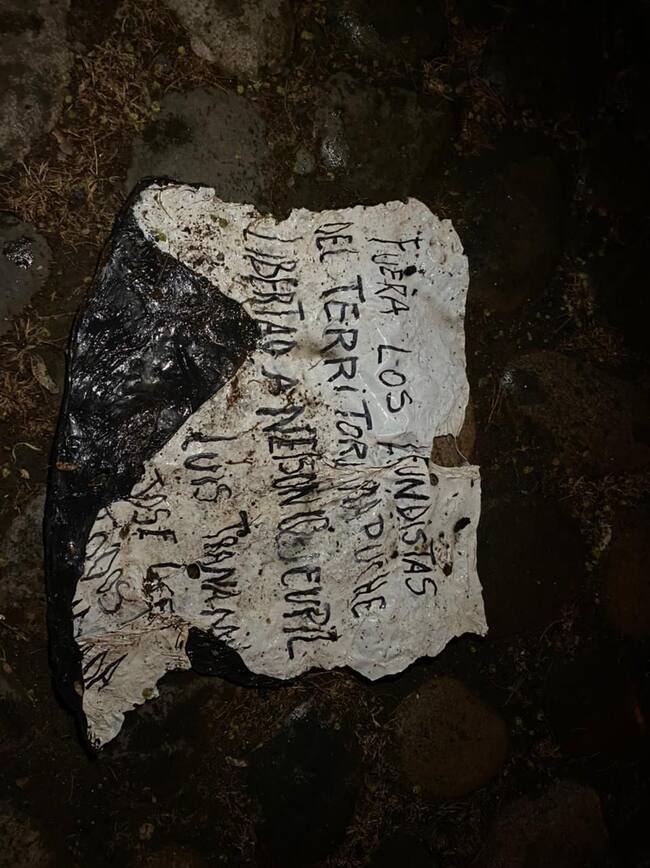 FUERA LOS FUNDISTAS
DEL TERRITORIO MAPUCHE
LIBERTAD A NELSON QUEUPIL
LUIS TRANAMIL
JOSE LIE